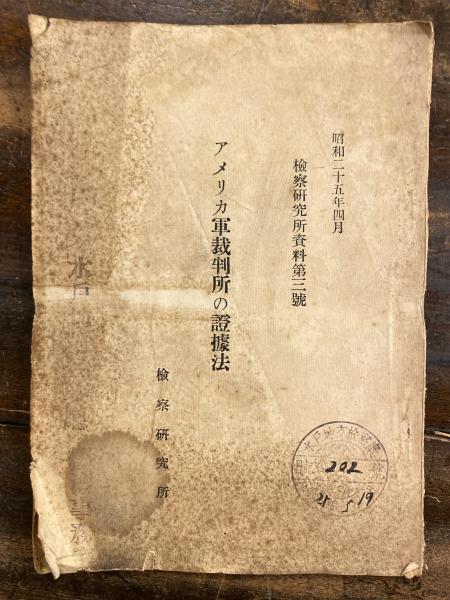 昭和二十五年四月
檢察研究所資料第三號
アメリカ軍裁判所の證據法
檢察研究所
水戶
水戶地方檢察廳
號
202
21 5 19